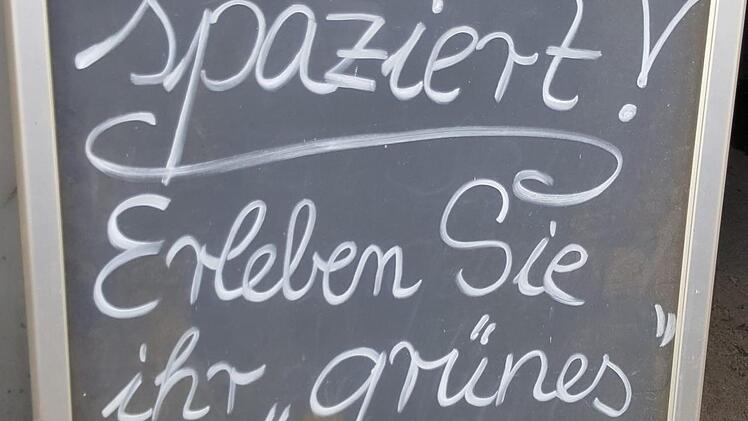 spaziert!
Erleben Sie
ihr „grünes"